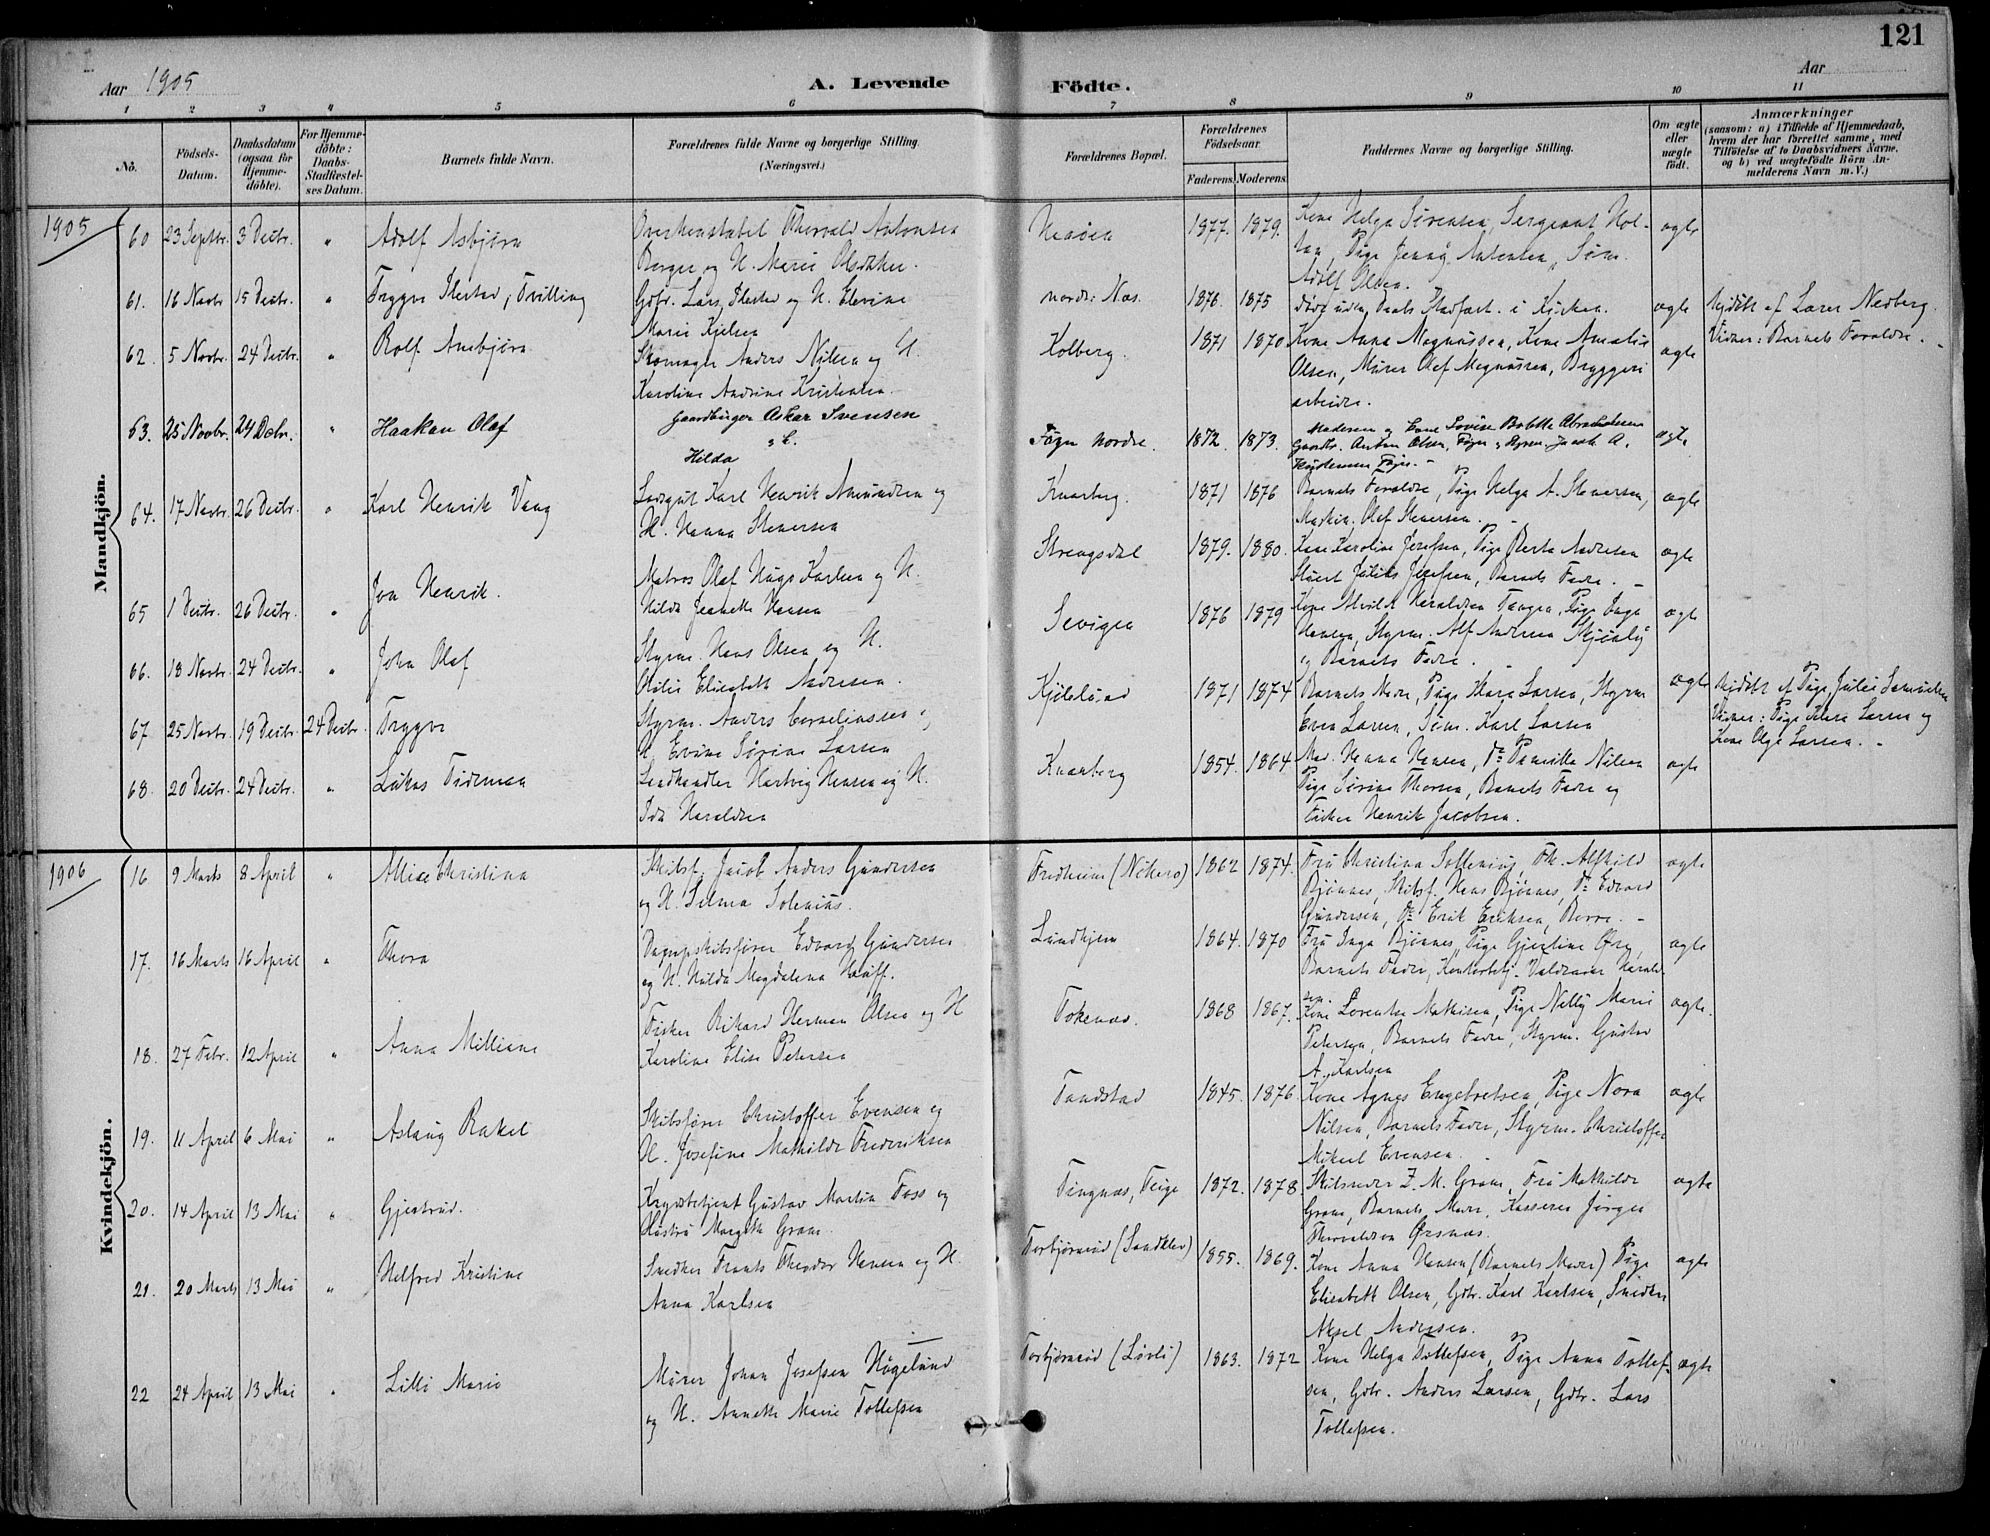 121
Aar 1905
A. Levende
Födte.
Aar
1 2 3 4 5 6 7 8 9 10 11
No.
Födsels-Datum.
Daabsdatum (ogsaa for Hjemme-döbte).
For Hjemme-döbte: Daabs-Stadfæstel-ses Datum.
Barnets fulde Navn.
Forældrenes fulde Navne og borgerlige Stilling. (Næringsvei.)
Forældrenes Bopæl.
Forældrenes Födselsaar.
Faderens. Moderens.
Faddernes Navne og borgerlige Stilling.
Om ægte eller uægte födt.
Anmærkninger
(saasom: a) i Tilfælde af Hjemmedaab, hvem der har forrettet samme, med Tilföielse af to Daabsvidners Navne, og b) ved uægtefödte Börn An-melderens Navn m. V.)
Mandkjön.
1905
60 23 Septbr. 3 Decbr. " Adolf Asbjørn
Thorvald Antonsen
Berger og H. Marie
1877. 1879.
Kone Helga Sørensen, Sergeant Hol-
Pige Jenny Antonsen, Sjøm.
Adolf Olsen.
ægte
61. 16 Novbr 15 Decbr. " Trygve Ilestad, Tvilling
Gdbr. Lars Ilestad og H. Elevine
Marie Kjelsen
nordre Næs. 1876. 1875
Døde uden Daabs Stadfæst. i Kirken.
ægte
Hjdøbt af Lærer Nedberg.
Vidner: Barnets Forældre.
62. 5 Novbr. 24 Decbr. " Rolf Ansbjørn
Skomager Anders Nilsen og H.
Karoline Andrine Kristensen
Kolberg. 1871 1870
Kone Anna Magnussen, Kone Amalie
Olsen, Murer Olef Magnussen, Bryggeri
arbeider.
ægte
63. 25 Novbr. 24 Debr. " Haakon Olaf
Gaardbruger Oskar Svensen
Hilda
Føgn nordre. 1872. 1873.
Moderen og Enne Lovise Bobette Abrahamsen
Gaardbr. Anton Olsen, Føgn
ægte
64. 17 Novbr. 26 Decbr. " Karl Henrik Vang
Karl Henrik Amundsen og
H. Hanna Stenersen
Knarberg. 1871 1876
Barnets Forældre, Pige Helga A. Stenersen,
Maskin. Olef Stenersen.
ægte
65 1 Decbr. 26 Decbr. " Jon Henrik.
Matros Olaf Hugo Karlsen og H.
Hilda Jeanette Hansen
Strengsdal 1879. 1880.
Kone Karoline Josefsen, Pige Berta Andresen
Stuert Julius Josefsen, Barnets Fader.
ægte
66. 18 Novbr. 24 Decbr. " John Olaf
Styrm. Hans Olsen og H.
Otilie Elisabeth Andersen.
1876 1879
Kone Alvilde Haraldsen Tangen, Pige Inga
Hansen, Styrm. Alf Andersen
og Barnets Fader.
ægte
67 25 Novbr. 19 Decbr. 24 Decbr. Trygve
Styrm. Anders Corneliussen og
H. Evine Sørine Larsen
1871 1874
Barnets Moder, Pige Klara Larsen, Styrm
Even Larsen, Sjøm. Karl Larsen
ægte
Hjdøbt af Pige Julie Samuelsen
Vidner: Pige Klara Larsen og
Kone Olga Larsen.
68. 20 Decbr. 24 Decbr. " Lukas Tideman
Landhandler Hartvig Hansen og H.
Ida Haraldsen
Knarberg 1854. 1864
Mad. Hanna Hansen, Do Pernille Nilsen
Pige Sørine Thorsen, Barnets Fader og
Fisker Henrik Jacobsen.
ægte
Kvindekjön.
1906
16 9 Marts 8 April " Allice Christina
Skibsf. Jacob Anders Gundersen
og H. Selma Solenius.
Fredheim (Nøtterø) 1862 1874.
Fru Christina Sollenius, Frk. Alfhild
Bjønnes, Skibsf. Hans Bjønnes, Do Edvard
Gundersen, Do Erik Eriksen, Borre.
ægte
17. 16 Marts 16 April " Thora
Dampskibsfører Edvard Gundersen
og H. Hulda Magdalena
Lundhjem 1864. 1870
Fru Inga Bjønnes, Pige Gjertine
Barnets Fader, Kontorbetj. Valdemar Harald-
sen.
ægte
18. 27 Febr. 12 April " Anna Milliane
Fisker Rikard Herman Olsen og H
Karoline Elise Petersen
Tokenæs. 1868 1867.
Kone Lorentse Mathisen, Pige Nelly Marie
Petersen, Barnets Fader, Styrm. Gustav
A. Karlsen
ægte.
19. 11 April 6 Mai " Aslaug Rakel
Skibsfører Christoffer Evensen og
H. Josefine Mathilde Frederiksen
Tandstad 1845. 1876.
Kone Agnes Engebretsen, Pige Nora
Nilsen, Barnets Fader, Styrm. Christoffer
Mikael Evensen.
ægte
20. 14 April 13 Mai " Gjertrud.
Krydsbetjent Gustav Martin Foss og
Hustru Margethe Gram.
Tingnæs, Teige 1872. 1878.
Skibsreder Z. M. Gram, Fru Mathilde
Gram, Barnets Moder, Kasserer Jørgen
Thorvaldsen Ørsnæs.
ægte
21. 20 Marts 13 Mai " Helfred Kristine
Snedker Frants Theodor Hansen og H.
Anna Karlsen
Torbjørnrød (Sandklev) 1855. 1869.
Kone Anna Hansen (Barnets Moder) Pige
Elisabeth Olsen, Gdbr. Karl Karlsen, Snedker
Aksel Andersen.
ægte
22 24 April 13 Mai " Lilli Marie
Murer Johan Josefsen Haugelund
og H. Annette Marie Tollefsen
Torbjørnrød (Løvli) 1863. 1872
Kone Helga Tollefsen, Pige Anna Tollef-
sen, Gdbr. Anders Larsen, Gdbr. Lars
Tollefsen.
ægte